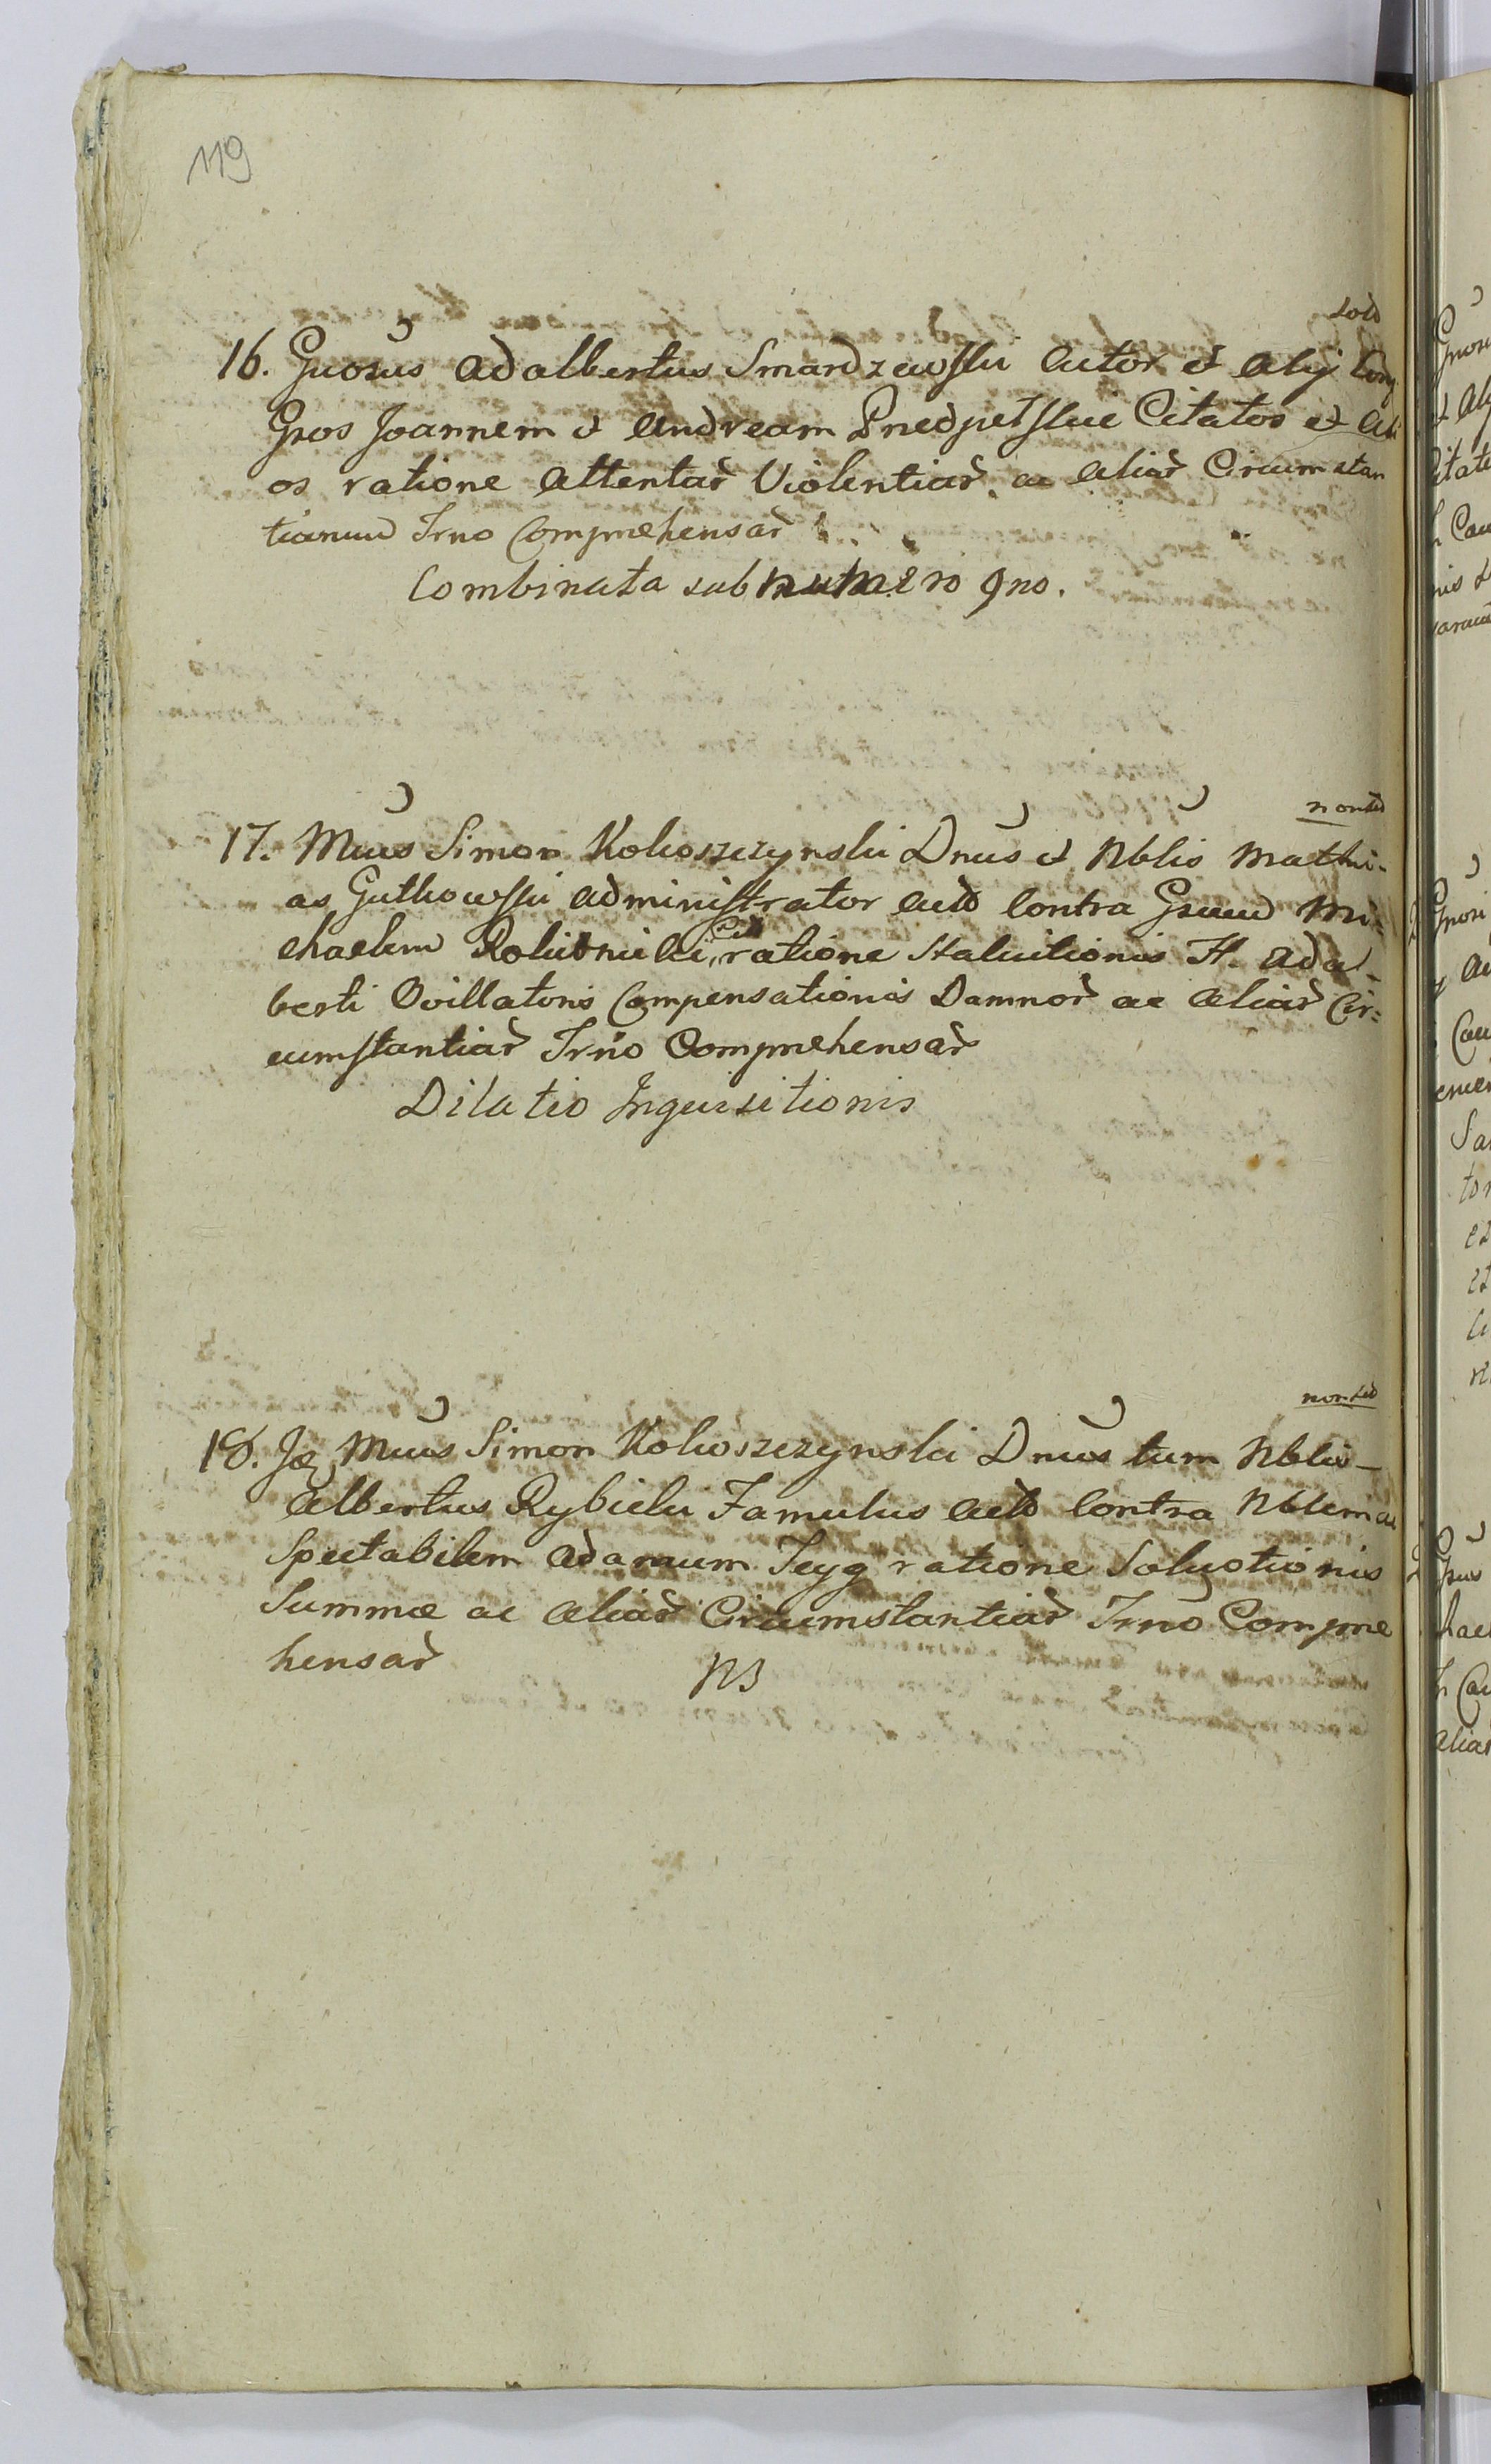 119
sold
16. Gnosus Adalbertus Smardzewski Actor et Alij Con
Gsos Joannem et Andream Przedpelskie Citatos et Ali
os ratione Attentar Violentiar ac Aliar Circumstan
tiarum Trno Comprehensar
Combinata sub numero 9no.
non sod
17. Mcus Simon Kokoszczynski Dnus et Nblis Mathi-
as Gutkowski Administrator Acto Contra Gsum Mi=
chaelem Rokitnicki Citt ratione Statuitionis H. Adal-
berti Ovillatoris Compensationis Damnor ac Aliar Cir=
cumstantiar Trno Comprehensar
Dilatio Inquisitionis
non sod
18. Je Mcus Simon Kokoszczynski Dnus tum Nblis
Albertus Rybicki Famulus Acto Contra Nblem ac
Spectabilem Adamum Teyg ratione Solutionis
Summæ ac Aliar Circumstantiar Trno Compre
hensar
NS